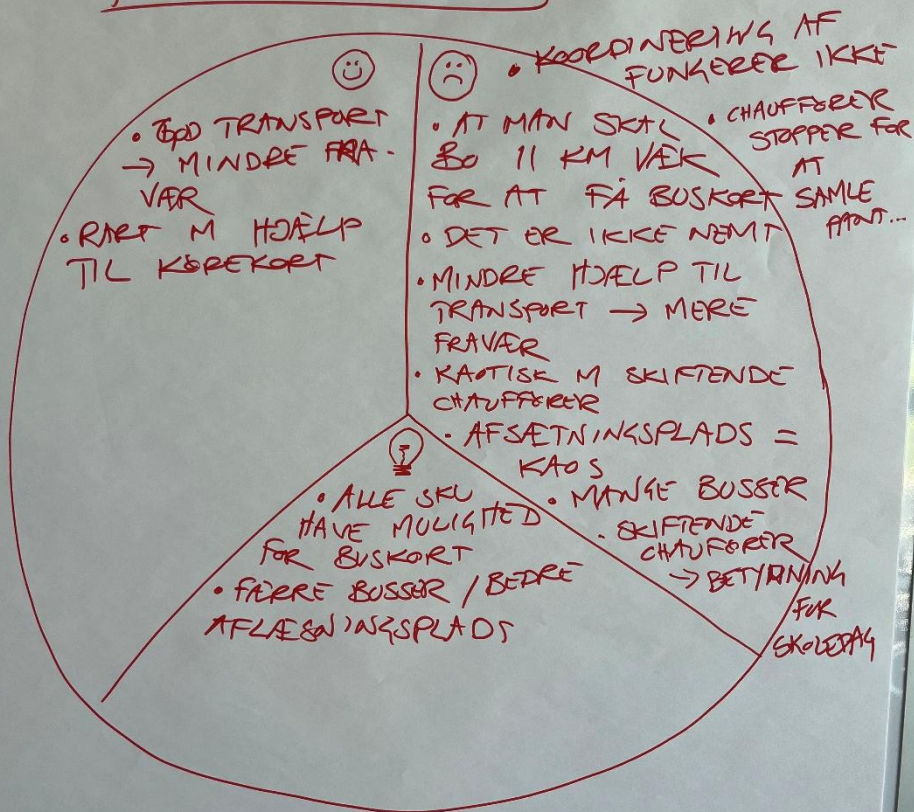 • GOD TRANSPORT
→ MINDRE FRA-
VÆR
• RART M HJÆLP
TIL KØREKORT
• KOORDINERING AF
FUNGERER IKKE
• CHAUFFØRER
STOPPER FOR
AT
SAMLE
PANT...
• AT MAN SKAL
BO 11 KM VÆK
FOR AT FÅ BUSKORT
• DET ER IKKE NEMT
• MINDRE HJÆLP TIL
TRANSPORT → MERE
FRAVÆR
• KAOTISK M SKIFTENDE
CHAUFFØRER
• AFSÆTNINGSPLADS =
KAOS
• MANGE BUSSER
• SKIFTENDE
CHAUFFØRER
→ BETYDNING
FOR
SKOLEDAG
• ALLE SKU
HAVE MULIGHED
FOR BUSKORT
• FÆRRE BUSSER / BEDRE
AFLÆSNINGSPLADS